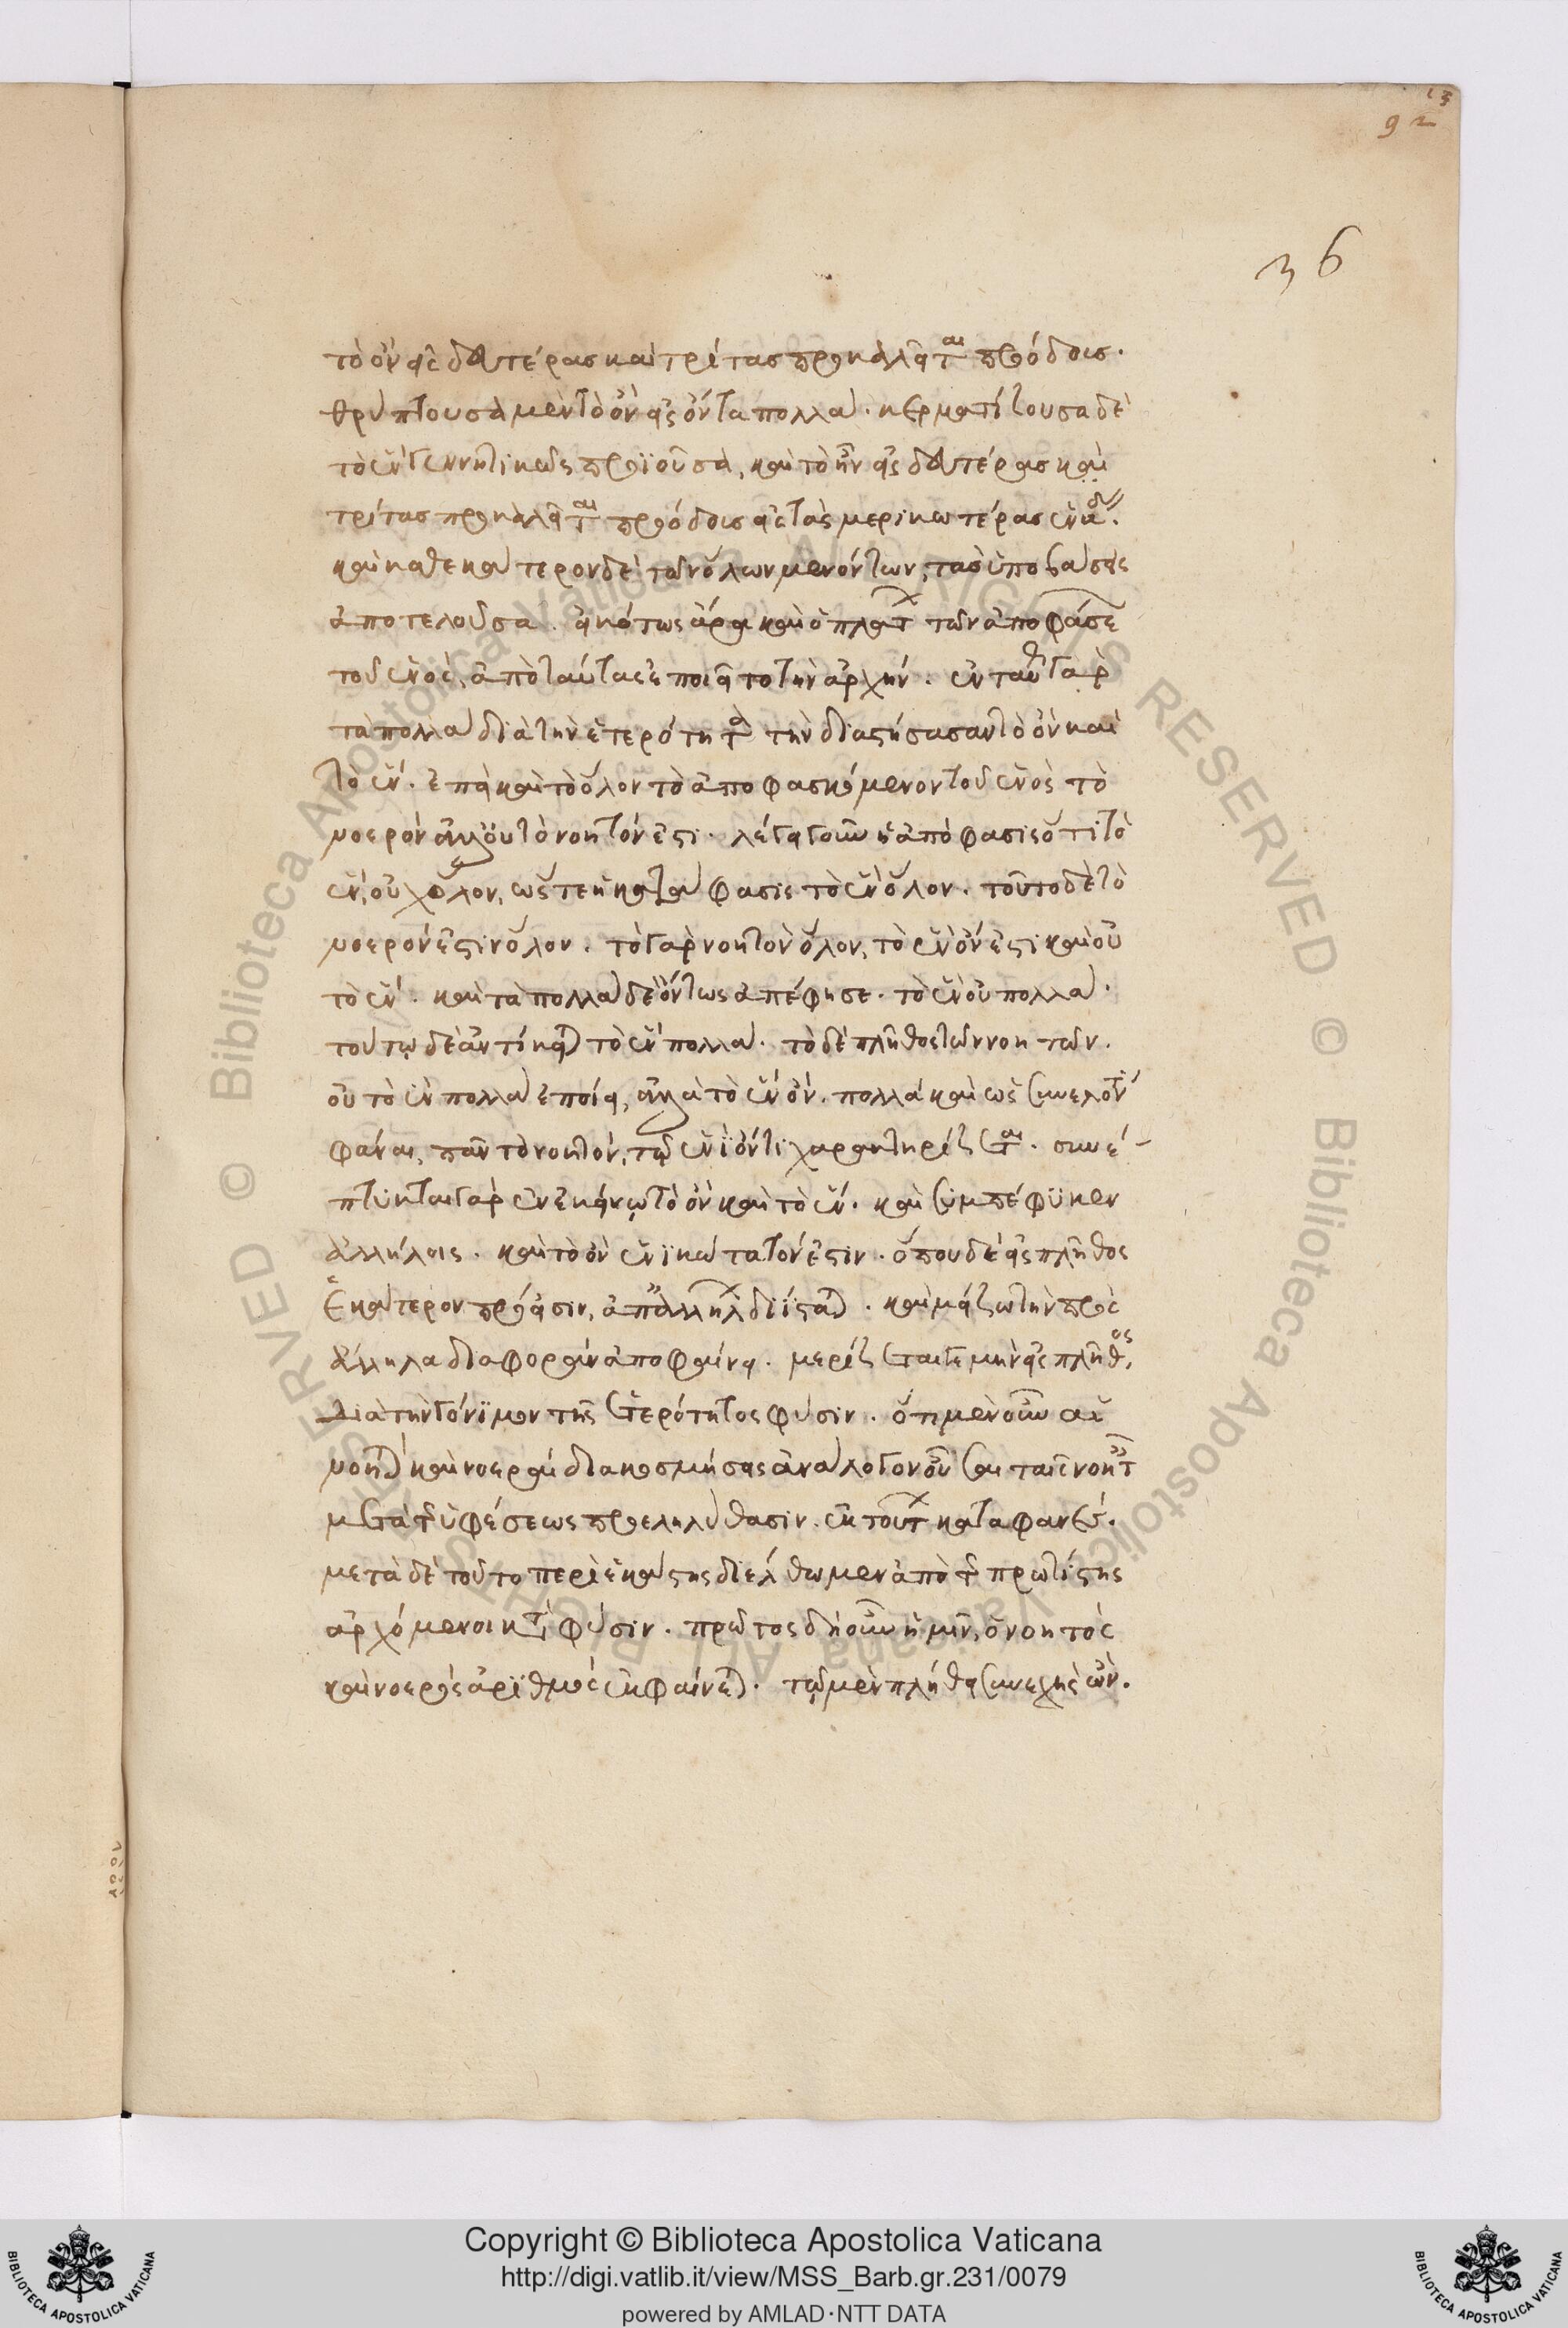 92
36
τὸ ὂν εἰς δευτέρας καὶ τρίτας προκαλεῖται προόδοις·
θρύπτουσα μὲν τὸ ὂν εἰς ὄντα πολλὰ· κερματίζουσα δὲ
τὸ ἓν γεννητικῶς προϊοῦσα, καὶ τὸ ἓν εἰς δευτέρας καὶ
τρίτας προκαλεῖται προόδοις εἰς τὰς μερικωτέρας ἑνάδας.
καὶ καθ' ἑκάτερον δὲ τῶν ὅλων μενόντων, τὰς ὑποβάσεις
ἀποτελοῦσα. εἰκότως ἄρα καὶ ὁ πλάτων τῶν ἀποφάσεων
τοῦ ἑνὸς, ἀπὸ ταύτης ἐποιεῖτο τὴν ἀρχήν. ἐνταῦθα γὰρ
τὰ πολλὰ διὰ τὴν ἑτερότητα τὴν διαστήσασαν τὸ ὂν καὶ
τὸ ἕν. ἐπεὶ καὶ τὸ ὅλον τὸ ἀποφασκόμενον τοῦ ἑνὸς τὸ
νοερὸν ἀλλ' οὐ τὸ νοητόν ἐστι· λέγει γοῦν ἡ ἀπόφασις ὅτι τὸ
ἓν, οὐχ ὅλον, ὥστε ἡ κατάφασις τὸ ἓν ὅλον. τοῦτο δὲ τὸ
νοερόν ἐστιν ὅλον. τὸ γὰρ νοητὸν ὅλον, τὸ ἓν ὄν ἐστι καὶ οὐ
τὸ ἕν. καὶ τὰ πολλὰ δὲ ὄντως ἀπέφησε. τὸ ἓν οὐ πολλὰ·
τούτῳ δὲ ἀντίκειται τὸ ἓν πολλὰ. τὸ δὲ πλῆθος τῶν νοητῶν.
οὐ τὸ ἓν πολλὰ ἐποίει, ἀλλὰ τὸ ἓν ὄν. πολλά καὶ ὡς συνελόντι
φάναι, πᾶν τὸ νοητόν, τῷ ἑνὶ ὄντι χαρακτηρίζεται. συνέ-
πτυκται γὰρ ἐν ἐκείνῳ τὸ ὂν καὶ τὸ ἕν. καὶ συμπέφυκεν
ἀλλήλοις. καὶ τὸ ὂν ἑνικώτατόν ἐστιν. ὅπου δὲ εἰς πλῆθος
ἑκάτερον πρόεισιν, ἀπ' ἀλλήλων διίσταται. καὶ μείζω τὴν πρὸς
ἄλληλα διαφορὰν ἀποφαίνει. μερίζεταί τε μὴν εἰς πλῆθος,
διὰ τὴν γόνιμον τῆς ἑτερότητος φύσιν. ὅτι μὲν οὖν αἱ
νοηταὶ καὶ νοεραὶ διακοσμήσεις ἀνάλογον οὖσαι ταῖς νοηταῖς
μετὰ τῆς ὑφέσεως προεληλύθασιν. ἐκ τούτων καταφανές.
μετὰ δὲ τοῦτο περὶ ἑκάστης διέλθωμεν ἀπὸ τῆς πρωτίστης
ἀρχόμενοι κατὰ φύσιν. πρῶτος δὴ οὖν ἡμῖν, ὁ νοητὸς
καὶ νοερὸς ἀριθμὸς ἐκφαίνεται. τῷ μὲν πλήθει συνεχὴς ὤν.
Copyright © Biblioteca Apostolica Vaticana
http://digi.vatlib.it/view/MSS_Barb.gr.231/0079
powered by AMLAD · NTT DATA